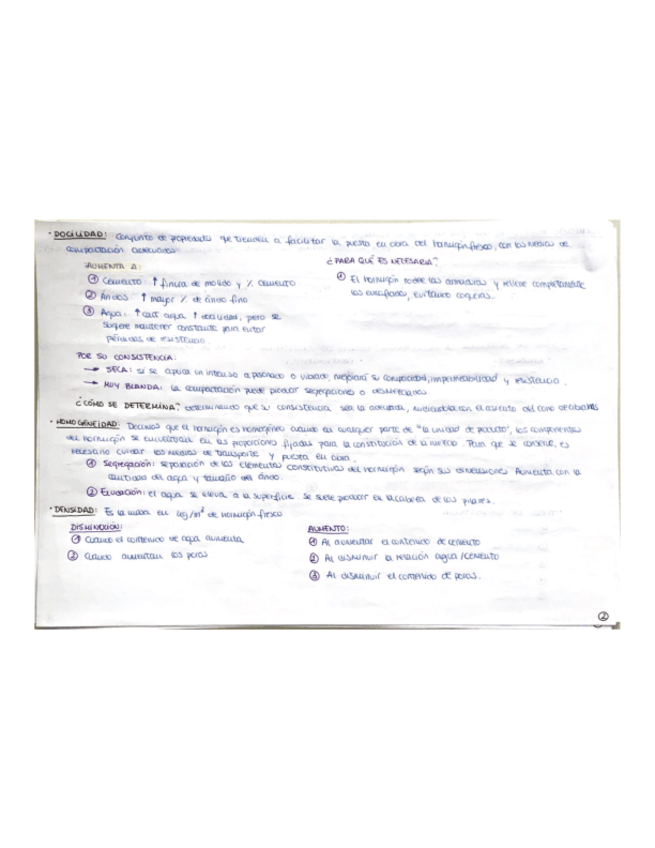 · DOCILIDAD: Conjunto de propiedades que tienden a facilitar la puesta en obra del hormigón fresco, con los medios de
compactación
AUMENTA A:
① Cemento: ↑ finura de molido y % cemento
② Áridos: ↑ mayor % de árido fino
③ Agua: ↑ cant agua ↑ docilidad, pero se
sugiere mantener constante para evitar
pérdidas de resistencia.
¿PARA QUÉ ES NECESARIA?
① El hormigón rodee las armaduras y rellene completamente
los encofrados, evitando coqueras.
POR SU CONSISTENCIA:
→ SECA: si se aplica un intenso apisonado o vibrado, mejorará su compacidad, impermeabilidad y resistencia.
→ MUY BLANDA: la compactación puede producir segregaciones o
¿CÓMO SE DETERMINA? determinando que su consistencia sea la adecuada, el asiento del cono de Abrams
· HOMOGENEIDAD: Decimos que el hormigón es homogéneo cuando en cualquier parte de "la unidad de producto", los componentes
del hormigón se encuentran en las proporciones fijadas para la constitución de la mezcla. Para que se conserve, es
necesario cuidar los medios de transporte y puesta en obra.
① Segregación: separación de los elementos constitutivos del hormigón según sus dimensiones. Aumenta con la
cantidad del agua y tamaño del árido.
② Exudación: el agua se eleva a la superficie. Se suele producir en la cabeza de los pilares.
· DENSIDAD: Es la masa en kg/m³ de hormigón fresco
DISMINUCIÓN:
① Cuando el contenido de agua aumenta
② Cuando aumentan los poros
AUMENTO:
① Al aumentar el contenido de cemento
② Al disminuir la relación agua/cemento
③ Al disminuir el contenido de poros.
②